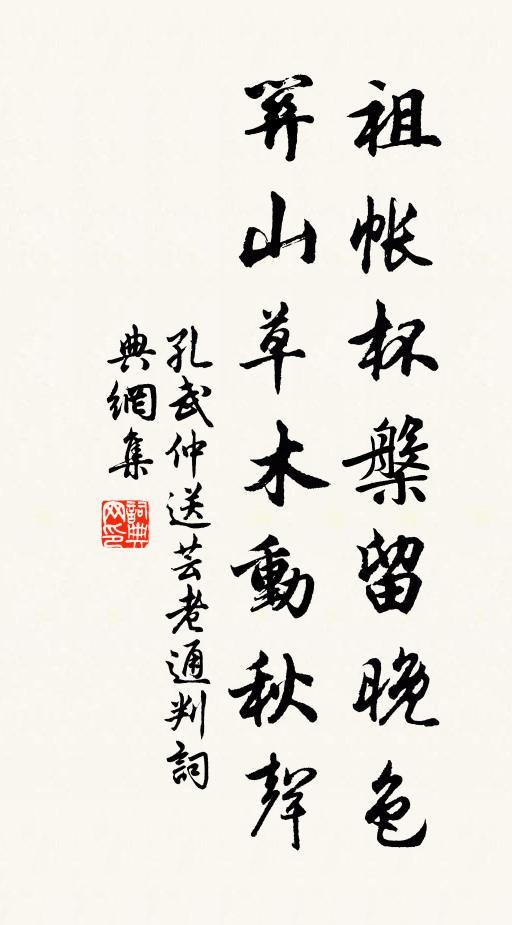 祖帳杯槃留晚色
羿山草木動秋聲
孔武仲送芸老通判詞
典網集
詞典网印